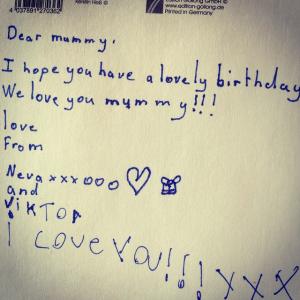 4 037891 270362
Kerstin Heß ©
Edition Gollong GmbH ©
www.edition-gollong.de
Printed in Germany
Dear mummy,
I hope you have a lovely birthday
We love you mummy!!!
love
From
Neva xxxooo
and
ViKTOR
I LOVE YOU!!! XXX